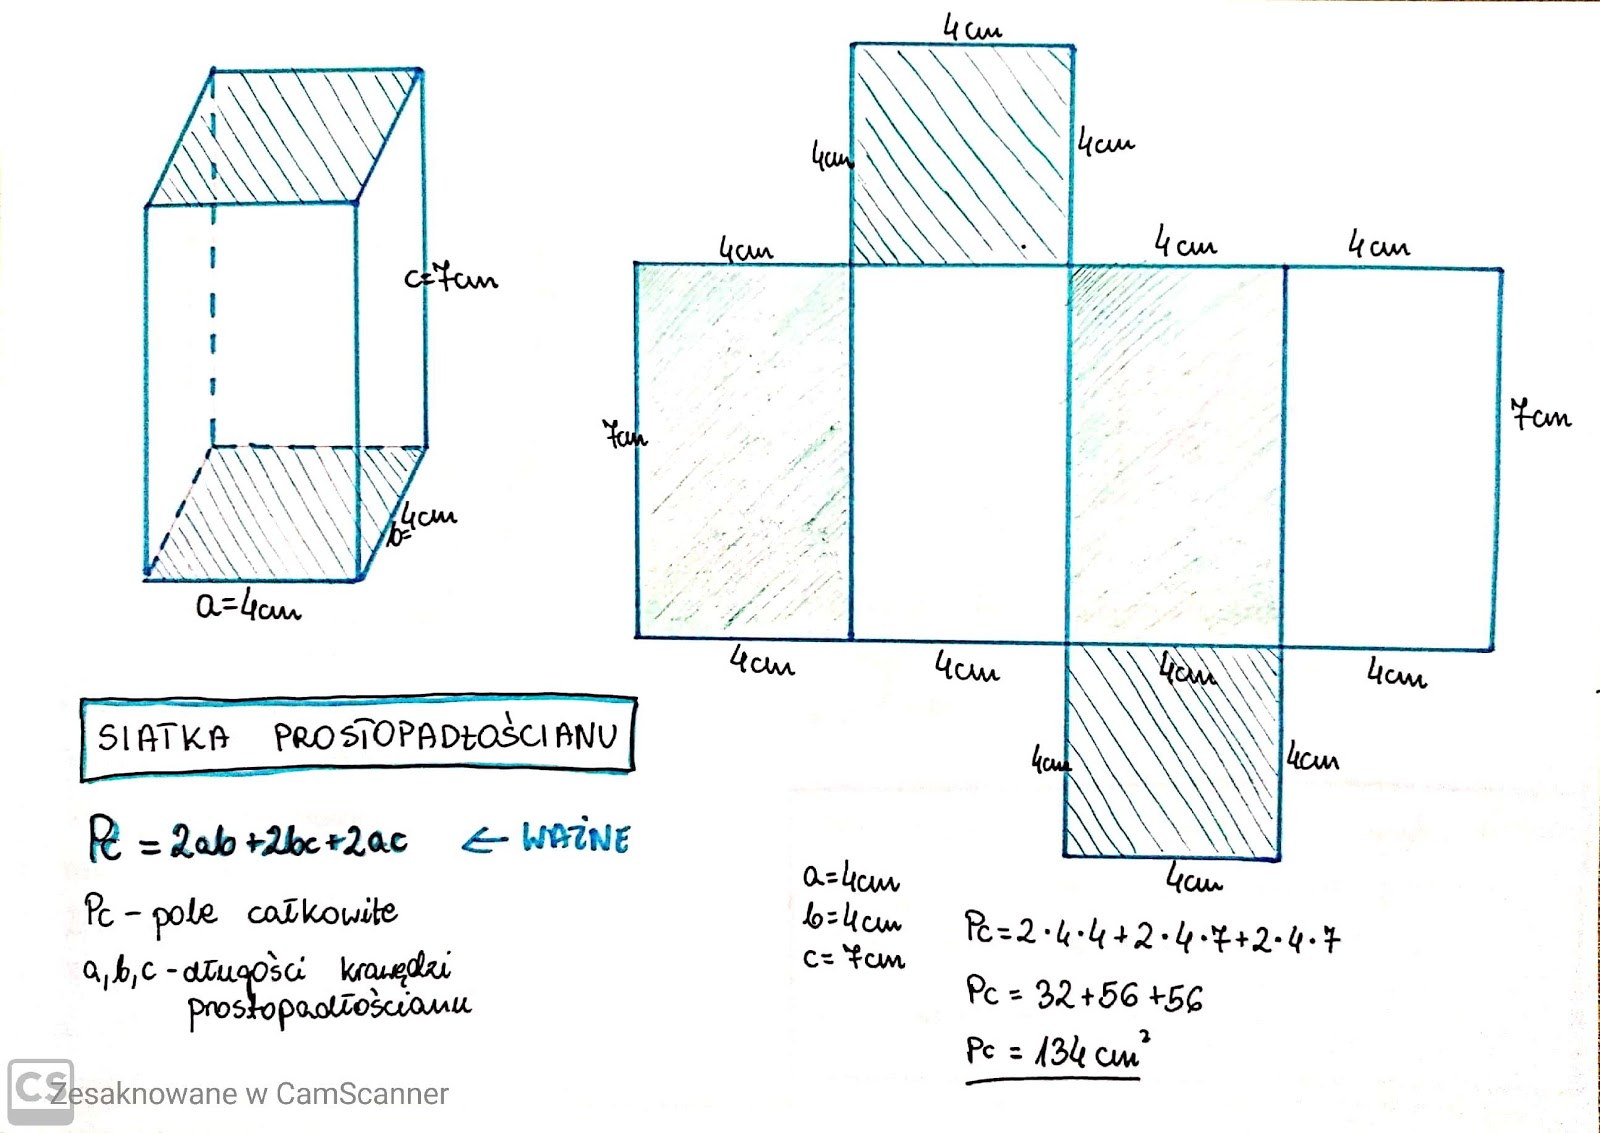 4cm
4cm
4cm
c=7cm
4cm
4cm
4cm
7cm
7cm
b=4cm
a=4cm
4cm
4cm
4cm
4cm
SIATKA PROSTOPADŁOŚCIANU
4cm
4cm
4cm
Pc = 2ab+2bc+2ac ← WAŻNE
Pc - pole całkowite
a,b,c - długości krawędzi
prostopadłościanu
a=4cm
b=4cm
c=7cm
Pc=2·4·4+2·4·7+2·4·7
Pc = 32+56+56
Pc = 134 cm²
CS
Zesaknowane w CamScanner